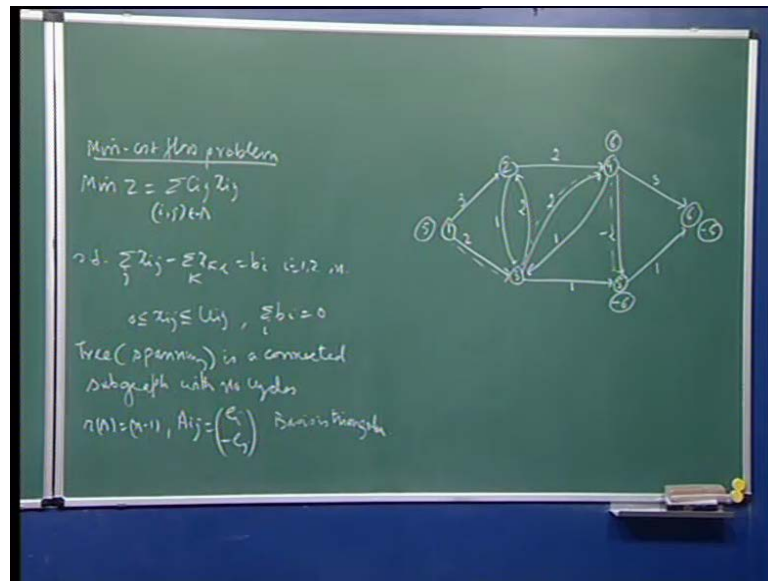 Min-cost flow problem
Min Z = Σ Cij xij
(i,j)∈A
s.t. Σj xij - Σk xki = bi i=1,2, n.
0≤ xij ≤ Uij, Σi bi = 0
Tree (spanning) is a connected
subgraph with no cycles
r(A)=(n-1), Aij = (ei -ej) Basis is triangular
6
2 2 4
3 1 2 2 1 -2 3
5 1 6 -5
2
3 1 5 1
-6